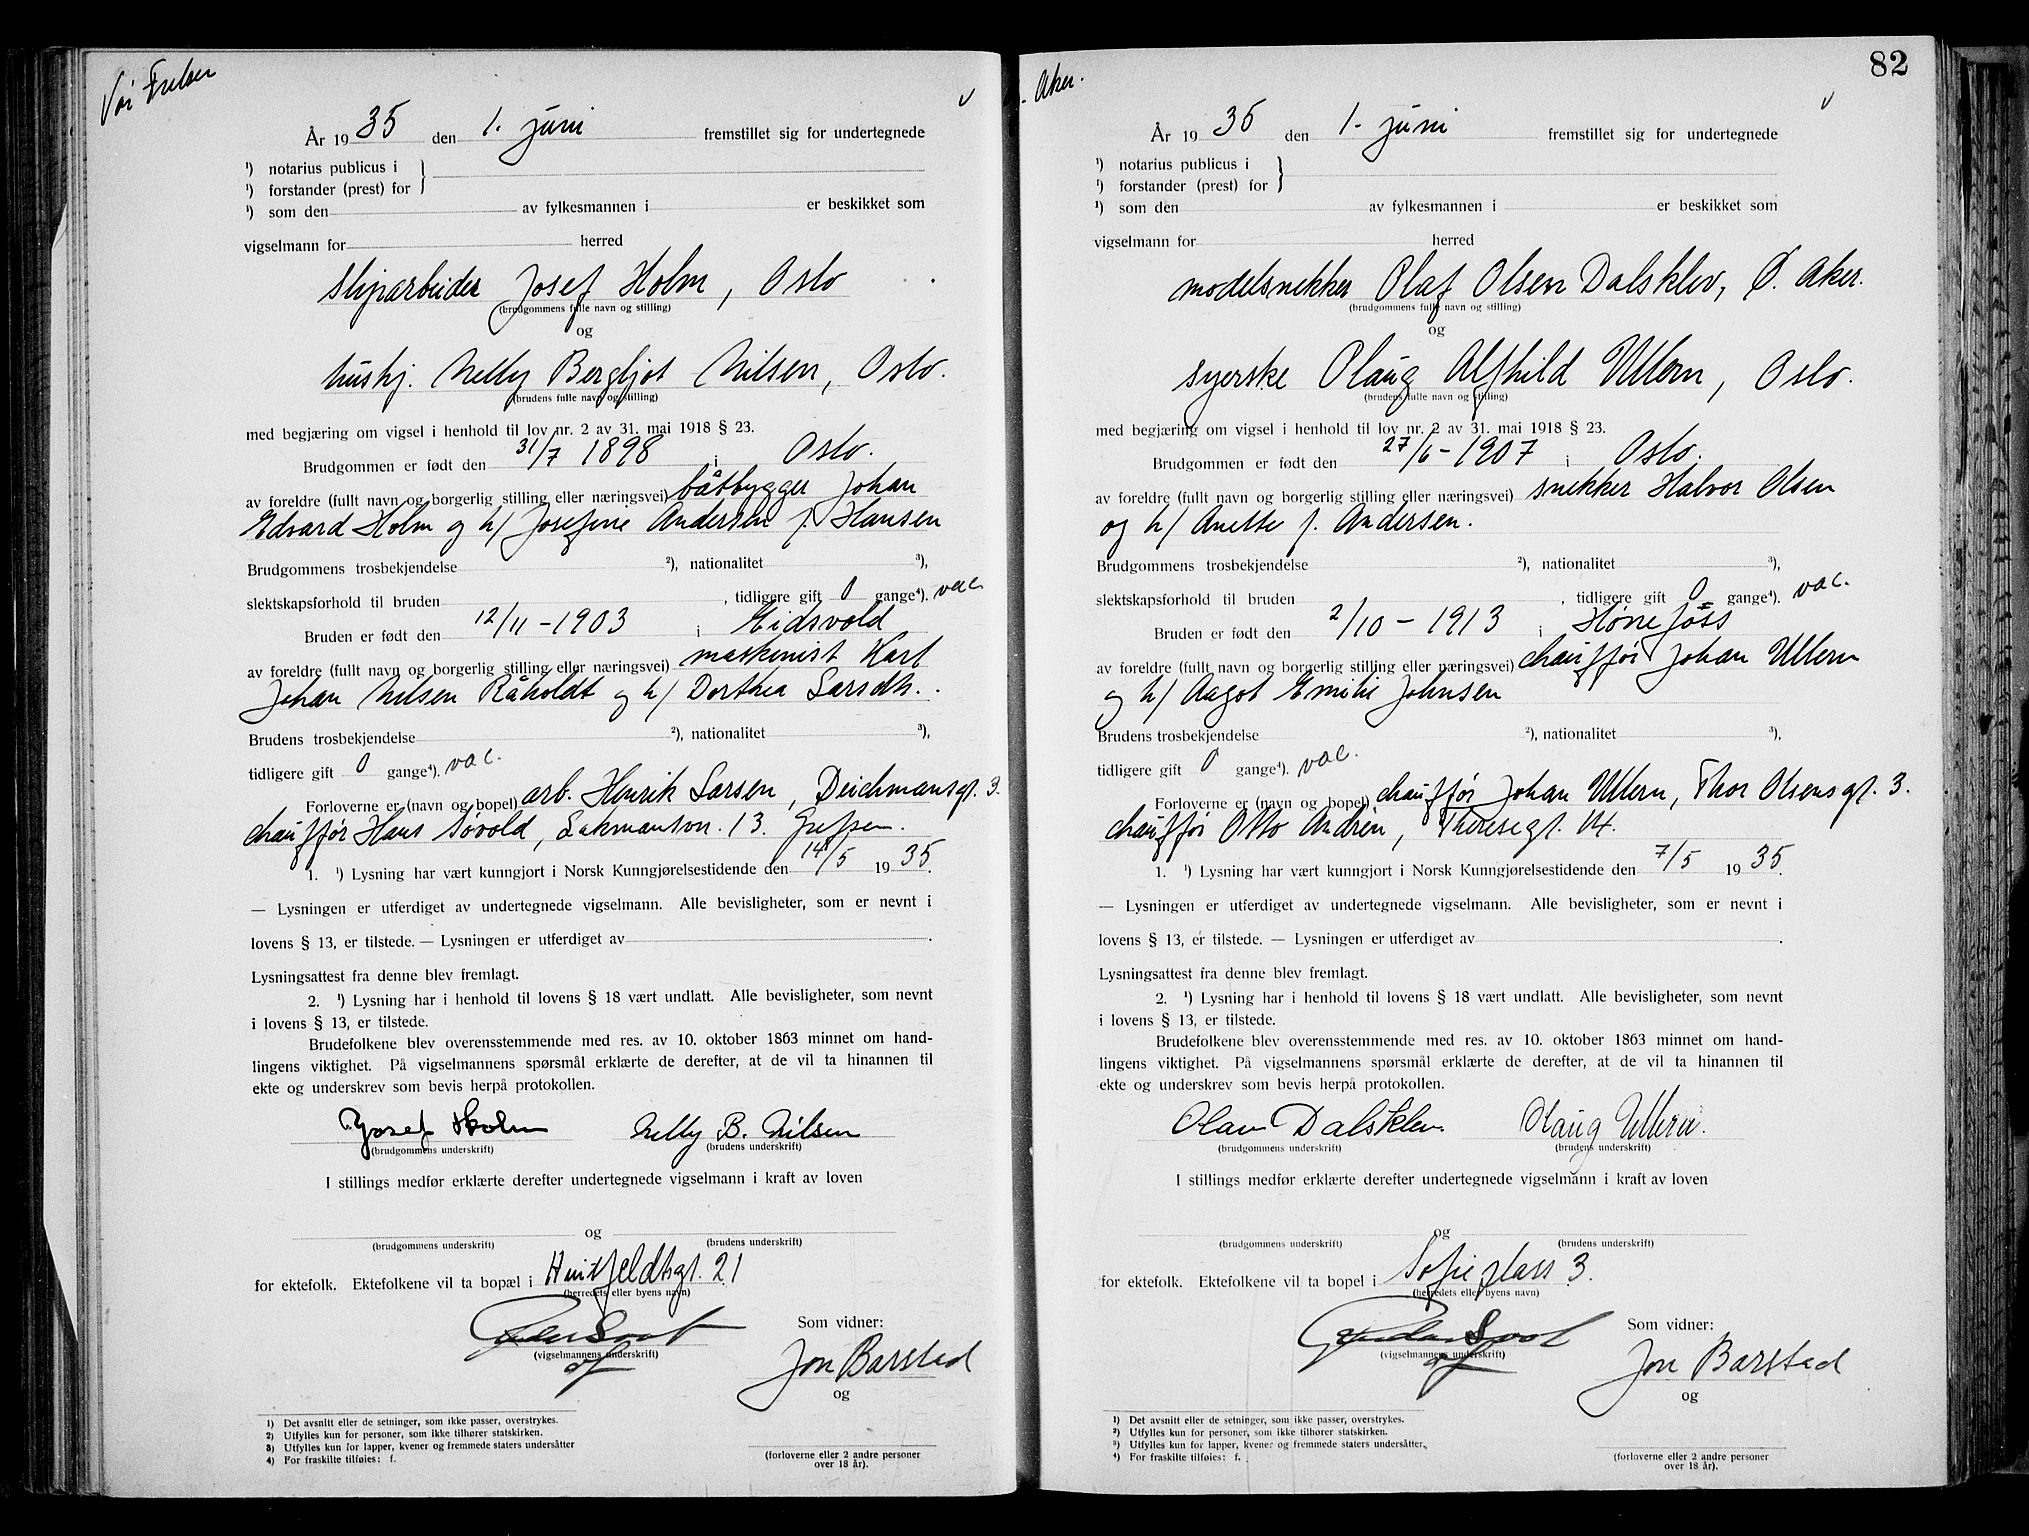 Vår Frelser
v
År 1935 den 1. juni fremstillet sig for undertegnede
¹) notarius publicus i
¹) forstander (prest) for
¹) som den av fylkesmannen i er beskikket som
vigselmann for herred
sliparbeider Josef Holm, Oslo
(brudgommens fulle navn og stilling)
og
hushj. Nelly Bergljot Nilsen, Oslo.
(brudens fulle navn og stilling)
med begjæring om vigsel i henhold til lov nr. 2 av 31. mai 1918 § 23.
Brudgommen er født den 31/7 1898 i Oslo.
av foreldre (fullt navn og borgerlig stilling eller næringsvei) båtbygger Johan
Edvard Holm og h/ Josefine Andersen f. Hansen
Brudgommens trosbekjendelse ²), nationalitet ³),
slektskapsforhold til bruden , tidligere gift 0 gange⁴). vac
Bruden er født den 12/11-1903 i Eidsvold
av foreldre (fullt navn og borgerlig stilling eller næringsvei) maskinist Karl
Johan Nilsen Råholdt og h/ Dorthea Larsdtr.
Brudens trosbekjendelse ²), nationalitet ³),
tidligere gift 0 gange⁴). vac.
Forloverne er (navn og bopel) arb. Henrik Larsen, Deichmansgt. 3.
chauffør Hans Søvold, Lakmansvn. 13. Grefsen.
1. ¹) Lysning har vært kunngjort i Norsk Kunngjørelsestidende den 14/5 1935.
— Lysningen er utferdiget av undertegnede vigselmann. Alle bevisligheter, som er nevnt i
lovens § 13, er tilstede. — Lysningen er utferdiget av .
Lysningsattest fra denne blev fremlagt.
2. ¹) Lysning har i henhold til lovens § 18 vært undlatt. Alle bevisligheter, som nevnt
i lovens § 13, er tilstede.
Brudefolkene blev overensstemmende med res. av 10. oktober 1863 minnet om hand-
lingens viktighet. På vigselmannens spørsmål erklærte de derefter, at de vil ta hinannen til
ekte og underskrev som bevis herpå protokollen.
Josef Holm Nelly B. Nilsen
(brudgommens underskrift) (brudens underskrift)
I stillings medfør erklærte derefter undertegnede vigselmann i kraft av loven
og
(brudgommens underskrift) (brudens underskrift)
for ektefolk. Ektefolkene vil ta bopæl i Huitfeldtsgt. 21
(herredets eller byens navn)
Som vidner:
(vigselmannens underskrift)
Jon Barstad
og
1) Det avsnitt eller de setninger, som ikke passer, overstrykes.
2) Utfylles kun for personer, som ikke tilhører statskirken.
3) Utfylles kun for lapper, kvener og fremmede staters undersåtter
4) For fraskilte tilføies: f.
(forloverne eller 2 andre personer
over 18 år).
Aker.
82
v
År 1935 den 1. juni fremstillet sig for undertegnede
¹) notarius publicus i
¹) forstander (prest) for
¹) som den av fylkesmannen i er beskikket som
vigselmann for herred
modelsnekker Olaf Olsen Dalsklev, Ø. Aker.
(brudgommens fulle navn og stilling)
og
syerske Olaug Alfhild Ullern, Oslo.
(brudens fulle navn og stilling)
med begjæring om vigsel i henhold til lov nr. 2 av 31. mai 1918 § 23.
Brudgommen er født den 27/6-1907 i Oslo.
av foreldre (fullt navn og borgerlig stilling eller næringsvei) snekker Halvor Olsen
og h/ Anette f. Andersen.
Brudgommens trosbekjendelse ²), nationalitet ³),
slektskapsforhold til bruden , tidligere gift 0 gange⁴). vac.
Bruden er født den 2/10-1913 i Hønefoss
av foreldre (fullt navn og borgerlig stilling eller næringsvei) chauffør Johan Ullern
og h/ Aagot Emilie Johnsen
Brudens trosbekjendelse ²), nationalitet ³),
tidligere gift 0 gange⁴). vac.
Forloverne er (navn og bopel) chauffør Johan Ullern, Thor Olsensgt. 3.
chauffør Otto Andrén, Theresegt. 14.
1. ¹) Lysning har vært kunngjort i Norsk Kunngjørelsestidende den 7/5 1935.
— Lysningen er utferdiget av undertegnede vigselmann. Alle bevisligheter, som er nevnt i
lovens § 13, er tilstede. — Lysningen er utferdiget av .
Lysningsattest fra denne blev fremlagt.
2. ¹) Lysning har i henhold til lovens § 18 vært undlatt. Alle bevisligheter, som nevnt
i lovens § 13, er tilstede.
Brudefolkene blev overensstemmende med res. av 10. oktober 1863 minnet om hand-
lingens viktighet. På vigselmannens spørsmål erklærte de derefter, at de vil ta hinannen til
ekte og underskrev som bevis herpå protokollen.
Olav Dalsklev. Olaug Ullern.
(brudgommens underskrift) (brudens underskrift)
I stillings medfør erklærte derefter undertegnede vigselmann i kraft av loven
og
(brudgommens underskrift) (brudens underskrift)
for ektefolk. Ektefolkene vil ta bopel i Sofieplass 3.
(herredets eller byens navn)
Som vidner:
(vigselmannens underskrift)
Jon Barstad
og
1) Det avsnitt eller de setninger, som ikke passer, overstrykes.
2) Utfylles kun for personer, som ikke tilhører statskirken.
3) Utfylles kun for lapper, kvener og fremmede staters undersåtter.
4) For fraskilte tilføies: f.
(forloverne eller 2 andre personer
over 18 år).